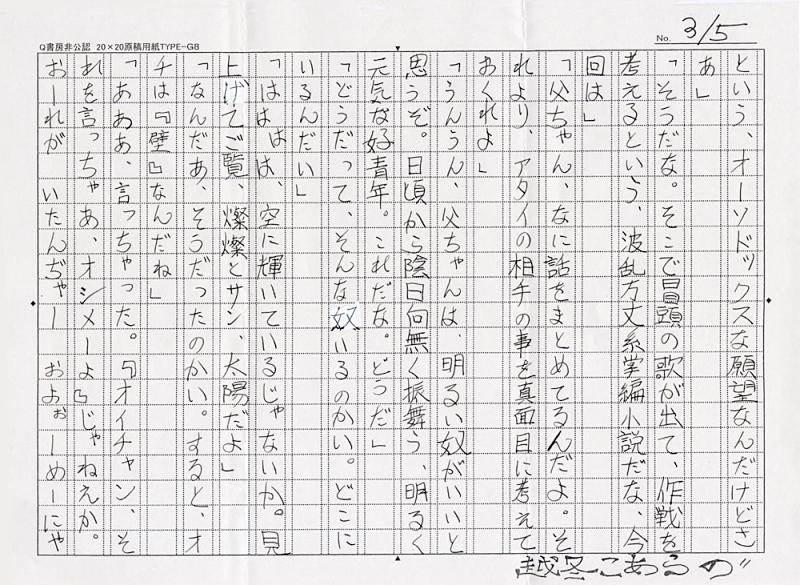 Q書房非公認 20×20原稿用紙TYPE-GB
No. 3/5
という、オーソドックスな願望なんだけどさ
あ」
「そうだな。そこで冒頭の歌が出て、作戦を
考えるという、波乱万丈系掌編小説だな、今
回は」
「父ちゃん、なに話をまとめてるんだよ。そ
れより、アタイの相手の事を真面目に考えて
おくれよ」
「うんうん、父ちゃんは、明るい奴がいいと
思うぞ。日頃から陰日向無く振舞う、明るく
元気な好青年。これだな。どうだ」
「どうだって、そんな奴いるのかい。どこに
いるんだい」
「ははは、空に輝いているじゃないか。見
上げてご覧、燦燦とサン、太陽だよ」
「なんだあ、そうだったのかい。すると、オ
チは『壁』なんだね」
「あああ、言っちゃった。『オイチャン、そ
れを言っちゃあ、オシメーよ』じゃねえか。
おーれが いたんぢゃー およぉーめーにゃ
越冬こあらの"